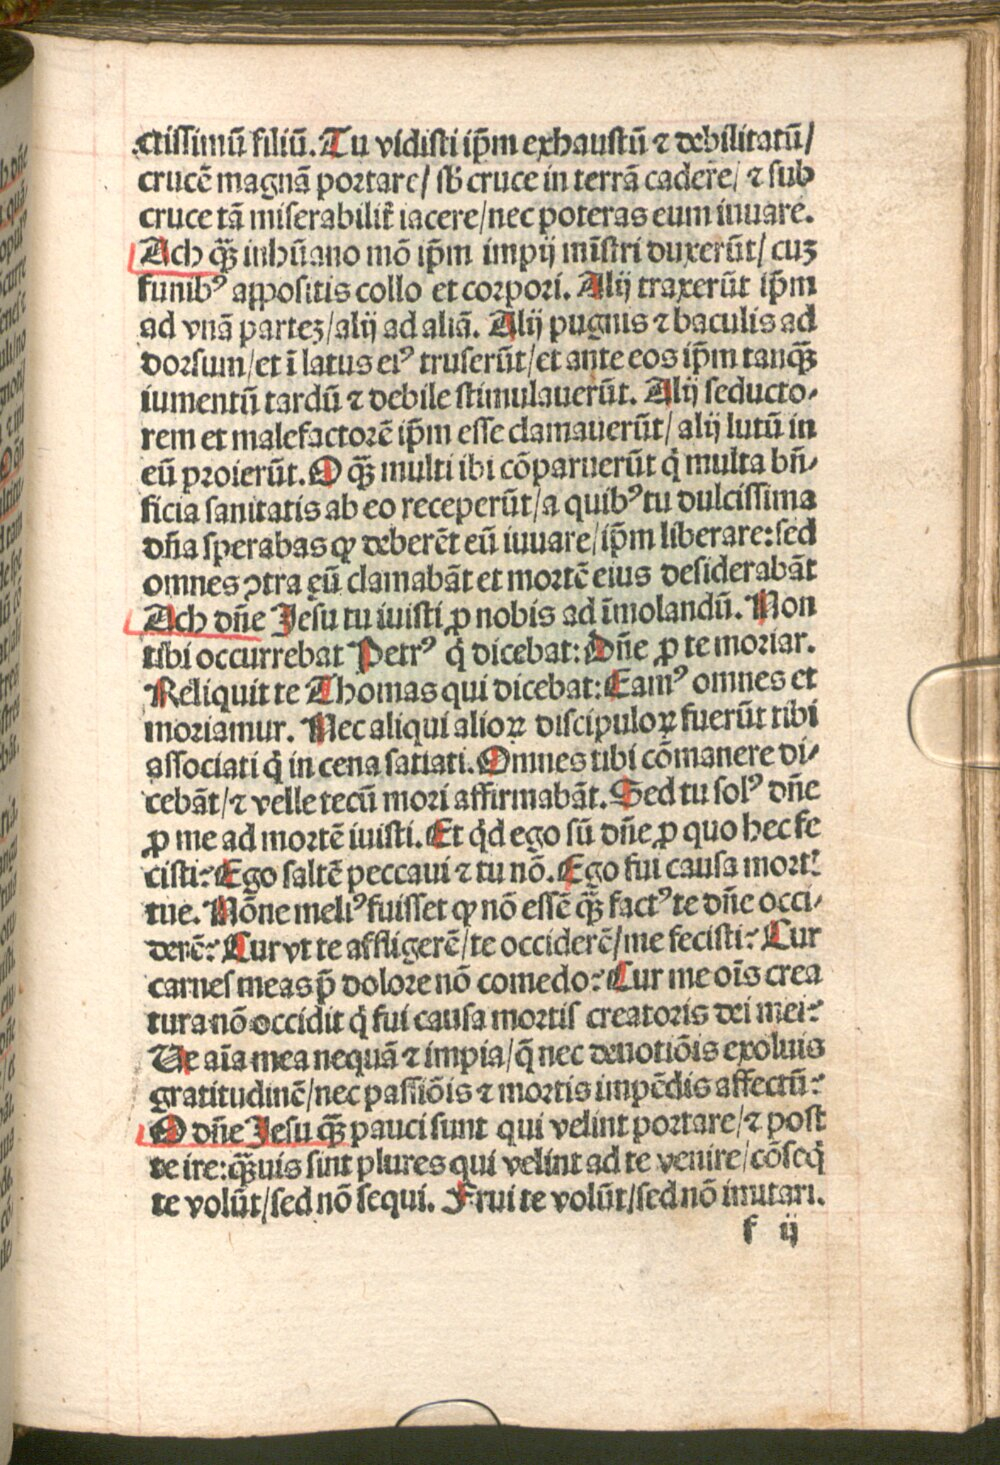 ctissimū filiū. Tu vidisti ip̄m exhaustū ⁊ debilitatū/
crucē magnā portare/ sb̄ cruce in terrā cadere/ ⁊ sub
cruce tā miserabilit̄ iacere/nec poteras eum iuuare.
Ach q̄ꝫ inhūano mō ip̄m impij mīstri duxerūt/ cuꝫ
funibꝰ appositis collo et corpori. Alij traxerūt ip̄m
ad vnā parteꝫ/alij ad aliā. Alij pugnis ⁊ baculis ad
dorsum/et ī latus eiꝰ truserūt/et ante eos ip̄m tanq̄ꝫ
iumentū tardū ⁊ debile stimulauerūt. Alij seducto⸗
rem et malefactorē ip̄m esse clamauerūt/ alij lutū in
eū proierūt. O q̄ꝫ multi ibi cōparuerūt q̇ multa bn̄⸗
ficia sanitatis ab eo receperūt/a quibꝰ tu dulcissima
dn̄a sperabas ꝙ deberēt eū iuuare/ip̄m liberare:sed
omnes ↄtra eū clamabāt et mortē eius desiderabāt
Ach dn̄e Jesu tu iuisti ꝓ nobis ad īmolandū. Non
tibi occurrebat Petrꝰ q̇ dicebat: Dn̄e ꝓ te moriar.
Reliquit te Thomas qui dicebat: Eamꝰ omnes et
moriamur. Nec aliqui alioꝝ discipuloꝝ fuerūt tibi
associati q̇ in cena satiati. Omnes tibi cōmanere di⸗
cebāt/⁊ velle tecū mori affirmabāt. Sed tu solꝰ dn̄e
ꝓ me ad mortē iuisti. Et q̇d ego sū dn̄e ꝓ quo hec fe
cisti? Ego saltē peccaui ⁊ tu nō. Ego fui causa mort̄
tue. Nōne meliꝰ fuisset ꝙ nō essē q̄ꝫ factꝰ te dn̄e occi⸗
derē? Cur vt te affligerē/te occiderē/me fecisti? Cur
carnes meas p̄ dolore nō comedo? Cur me oīs crea
tura nō occidit q̇ fui causa mortis creatoris dei mei?
Ve aīa mea nequā ⁊ impia/q̄ nec deuotiōis exoluis
gratitudinē/nec passiōis ⁊ mortis impēdis affectū?
O dn̄e Jesu q̄ꝫ pauci sunt qui velint portare/⁊ post
te ire:q̄ꝫuis sint plures qui velint ad te venire/cōseq̇
te volūt/sed nō sequi. Frui te volūt/sed nō imitari.
f ij